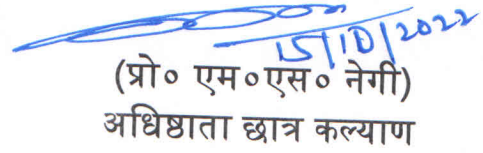 15/10/2022
(प्रो० एम०एस० नेगी)
अधिष्ठाता छात्र कल्याण